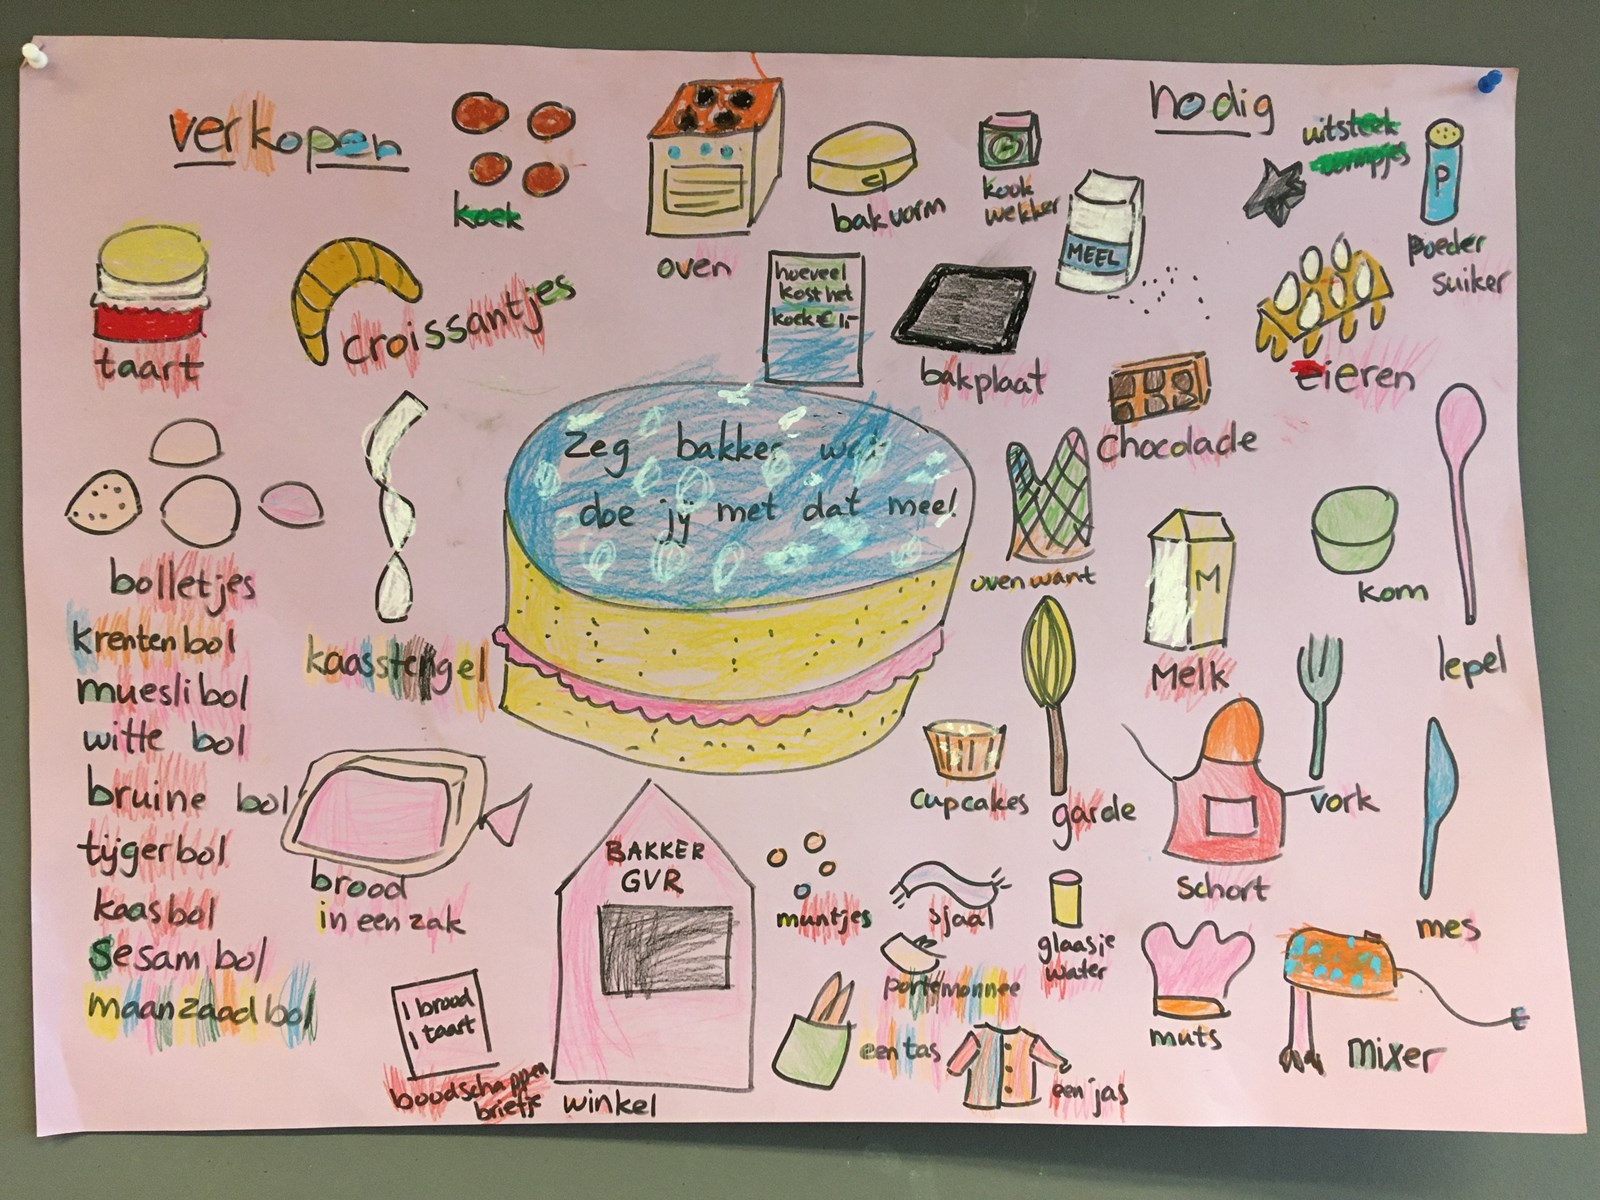 verkopen
koek
taart
croissantjes
bolletjes
krentenbol
mueslibol
witte bol
bruine bol
tijgerbol
kaasbol
sesambol
maanzaadbol
kaasstengel
brood
in een zak
1 brood
1 taart
boodschappen
briefje
BAKKER
GVR
winkel
Zeg bakker wat
doe jij met dat mee!
hoeveel
kost het
koek € 1,-
nodig
oven
bakvorm
kook
wekker
MEEL
uitsteek
vormpjes
P
poeder
suiker
bakplaat
eieren
chocolade
ovenwant
M
Melk
kom
lepel
cupcakes
garde
schort
vork
mes
muntjes
sjaal
glaasje
water
portemonnee
een tas
een jas
muts
mixer